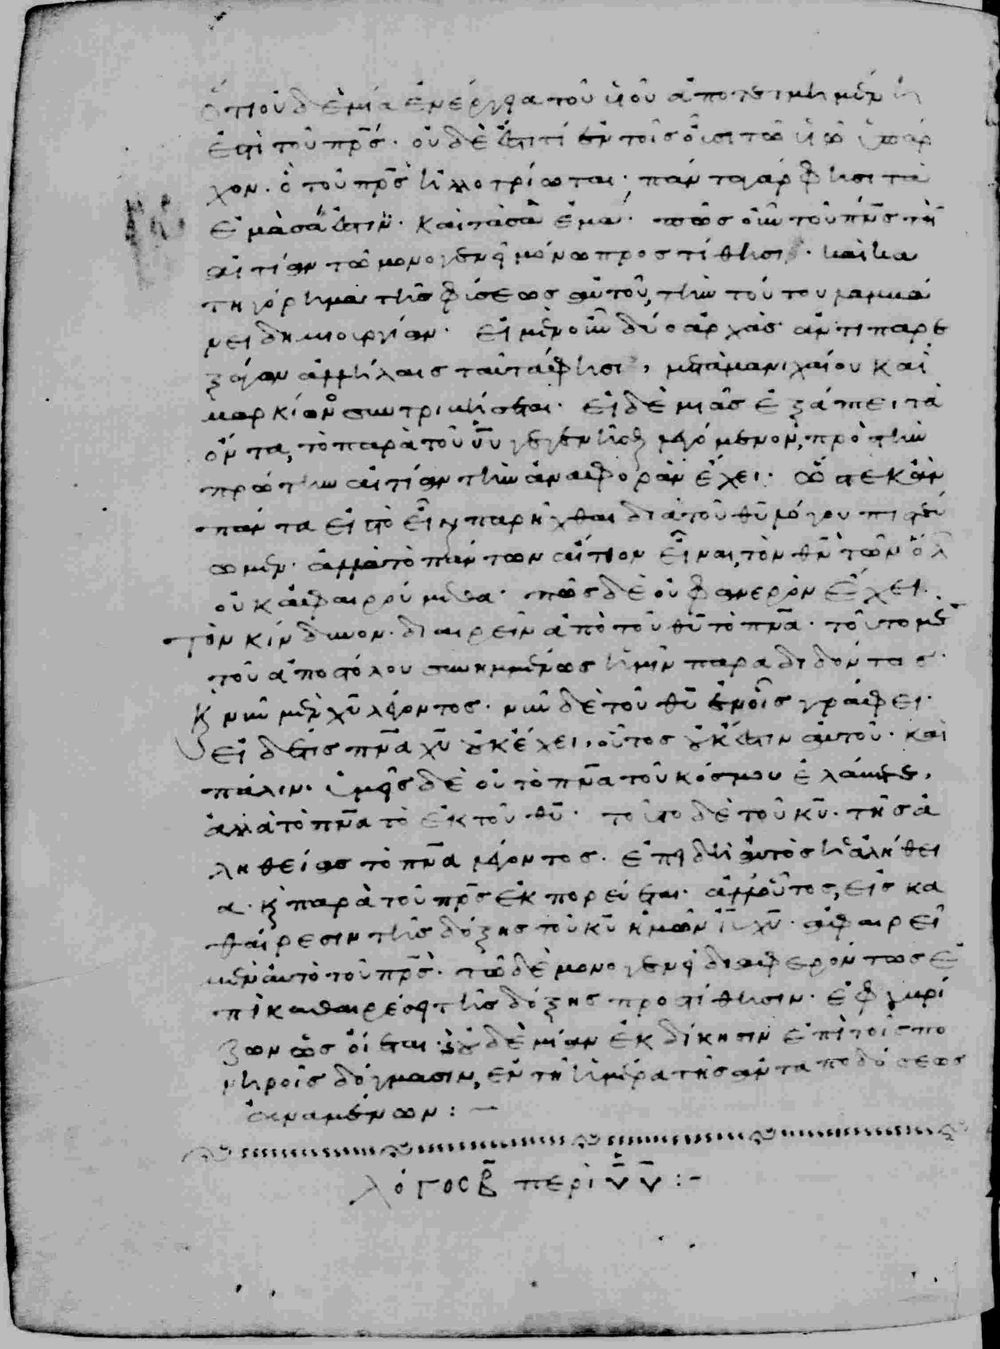 ὅτι οὐδεμία ἐνέργεια τοῦ υἱοῦ ἀποτετμημένη
ἐστὶ τοῦ πρς̄· οὐδὲ ἔστι τί ἐν τοῖς οὖσι τῶ υἱῶ ὑπάρ
χον· ὃ τοῦ πρς̄ ἠλλοτρίωται· πάντα γάρ φησι τὰ
ἐμὰ σά ἐστιν· καὶ τὰ σὰ ἐμά· πῶς οὖν τοῦ πνς̄ τὴν
αἰτίαν τῶ μονογενεῖ μόνω προστίθησι· καὶ κα
τηγόρημα τῆς φύσεως αὐτοῦ, τὴν τούτου λαμβά
νει δημιουργίαν· εἰ μὲν οὖν δύο ἀρχὰς ἀντιπαρε
ξάγων ἀλλήλαις ταῦτά φησι, μετὰ μανιχαίου καὶ
μαρκίωνος συντριβήσεται· εἰ δὲ μιᾶς ἐξάπτει τὰ
ὄντα, τὸ παρὰ τοῦ υῡ γεγενῆσθαι λεγόμενον, πρὸς τὴν
πρώτην αἰτίαν τὴν ἀναφορὰν ἔχει· ὥστε κἂν
πάντα εἰς τὸ εἶναι παρῆχθαι διὰ τοῦ θῡ λόγου πιστεύ
ωμεν· ἀλλὰ τὸ πάντων αἴτιον εἶναι, τὸν θν̄ τῶν ὅλων
οὐκ ἀφαιρούμεθα· πῶς δὲ οὐ φανερὸν ἔχει
τὸν κίνδυνον· διαιρεῖν ἀπὸ τοῦ θῡ τὸ πνᾱ· τοῦτο μὲν
τοῦ ἀποστόλου συνημμένως ἡμῖν παραδιδόντος·
κ νῦν μὲν χῡ λέγοντος· νῦν δὲ τοῦ θῡ ἐν οἷς γράφει·
εἰ δέ τις πνᾱ χῡ οὐκ ἔχει, οὗτος οὐκ ἔστιν αὐτοῦ· καὶ
πάλιν· ὑμεῖς δὲ οὐ τὸ πνᾱ τοῦ κόσμου ἐλάβετε,
ἀλλὰ τὸ πνᾱ τὸ ἐκ τοῦ θῡ· τοῦτο δὲ τοῦ κῡ· τῆς ἀ
ληθείας τὸ πνᾱ λέγοντος· ἐπειδὴ αὐτὸς ἡ ἀλήθει
α· κ παρὰ τοῦ πρς̄ ἐκπορεύεται· ἀλλ' οὗτος, εἰς κα
θαίρεσιν τῆς δόξης τοῦ κῡ ἡμῶν ιῡ χῡ· ἀφαιρεῖ
μὲν αὐτὸ τοῦ πρς̄· τῶ δὲ μονογενεῖ διαφερόντως ἐ
πὶ καθαιρέσει τῆς δόξης προστίθησιν· ἐφυβρί
ζων ὡς οἴεται· οὐδὲ μίαν ἐκδίκησιν ἐπὶ τοῖς πο
νηροῖς δόγμασιν, ἐν τῆ ἡμέρα τῆς ἀνταποδόσεως
ἀναμένων:—
λόγος β̄ περὶ υῡ:-